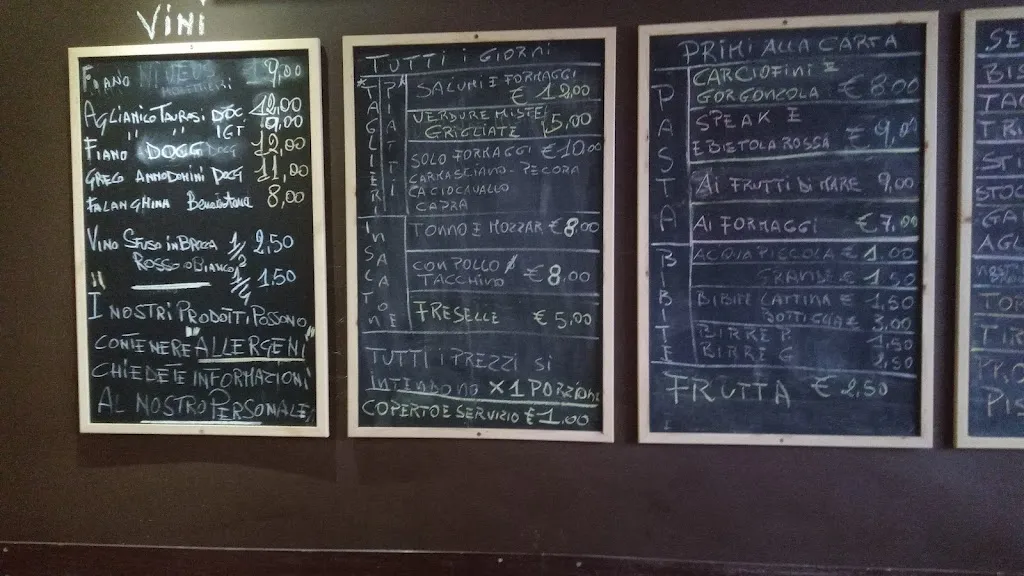 VINI
FIANO 9,00
AGLIANICO TAURASI DOC 12,00
" " IGT 9,00
FIANO DOCG 12,00
GRECO ANNODOMINI DOCG 11,00
FALANGHINA Beneventana 8,00
VINO SFUSO IN BROCCA 1/2 2,50
ROSSO O BIANCO
" 1/4 1,50
I NOSTRI PRODOTTI POSSONO
CONTENERE "ALLERGENI"
CHIEDETE INFORMAZIONI
AL NOSTRO PERSONALE
TUTTI I GIORNI
TAGLIERI
PIATTI
SALUMI E FORMAGGI
€ 12,00
VERDURE MISTE
GRIGLIATE 5,00
SOLO FORMAGGI €10,00
CARMASCIANO - PECORA
CACIOCAVALLO
CAPRA
INSALATONE
TONNO E MOZZAR € 8,00
CON POLLO
TACCHINO € 8,00
FRESELLE € 5,00
TUTTI I PREZZI SI
INTENDONO X 1 PORZIONE
COPERTO E SERVIZIO € 1,00
PRIMI ALLA CARTA
PASTA
CARCIOFINI E
GORGONZOLA € 8,00
SPEAK E
E BIETOLA ROSSA € 9,00
AI FRUTTI DI MARE 9,00
AI FORMAGGI € 7,00
BIBITE
ACQUA PICCOLA € 1,00
GRANDE € 1,50
BIBITE LATTINA € 1,50
BOTTIGLIA € 3,00
BIRRE P. 1,50
BIRRE G. 2,50
FRUTTA € 2,50
SE
BIS
TAG
TRI
STI
STOC
GA
AGL
TOR
TIR
PRO
PIS